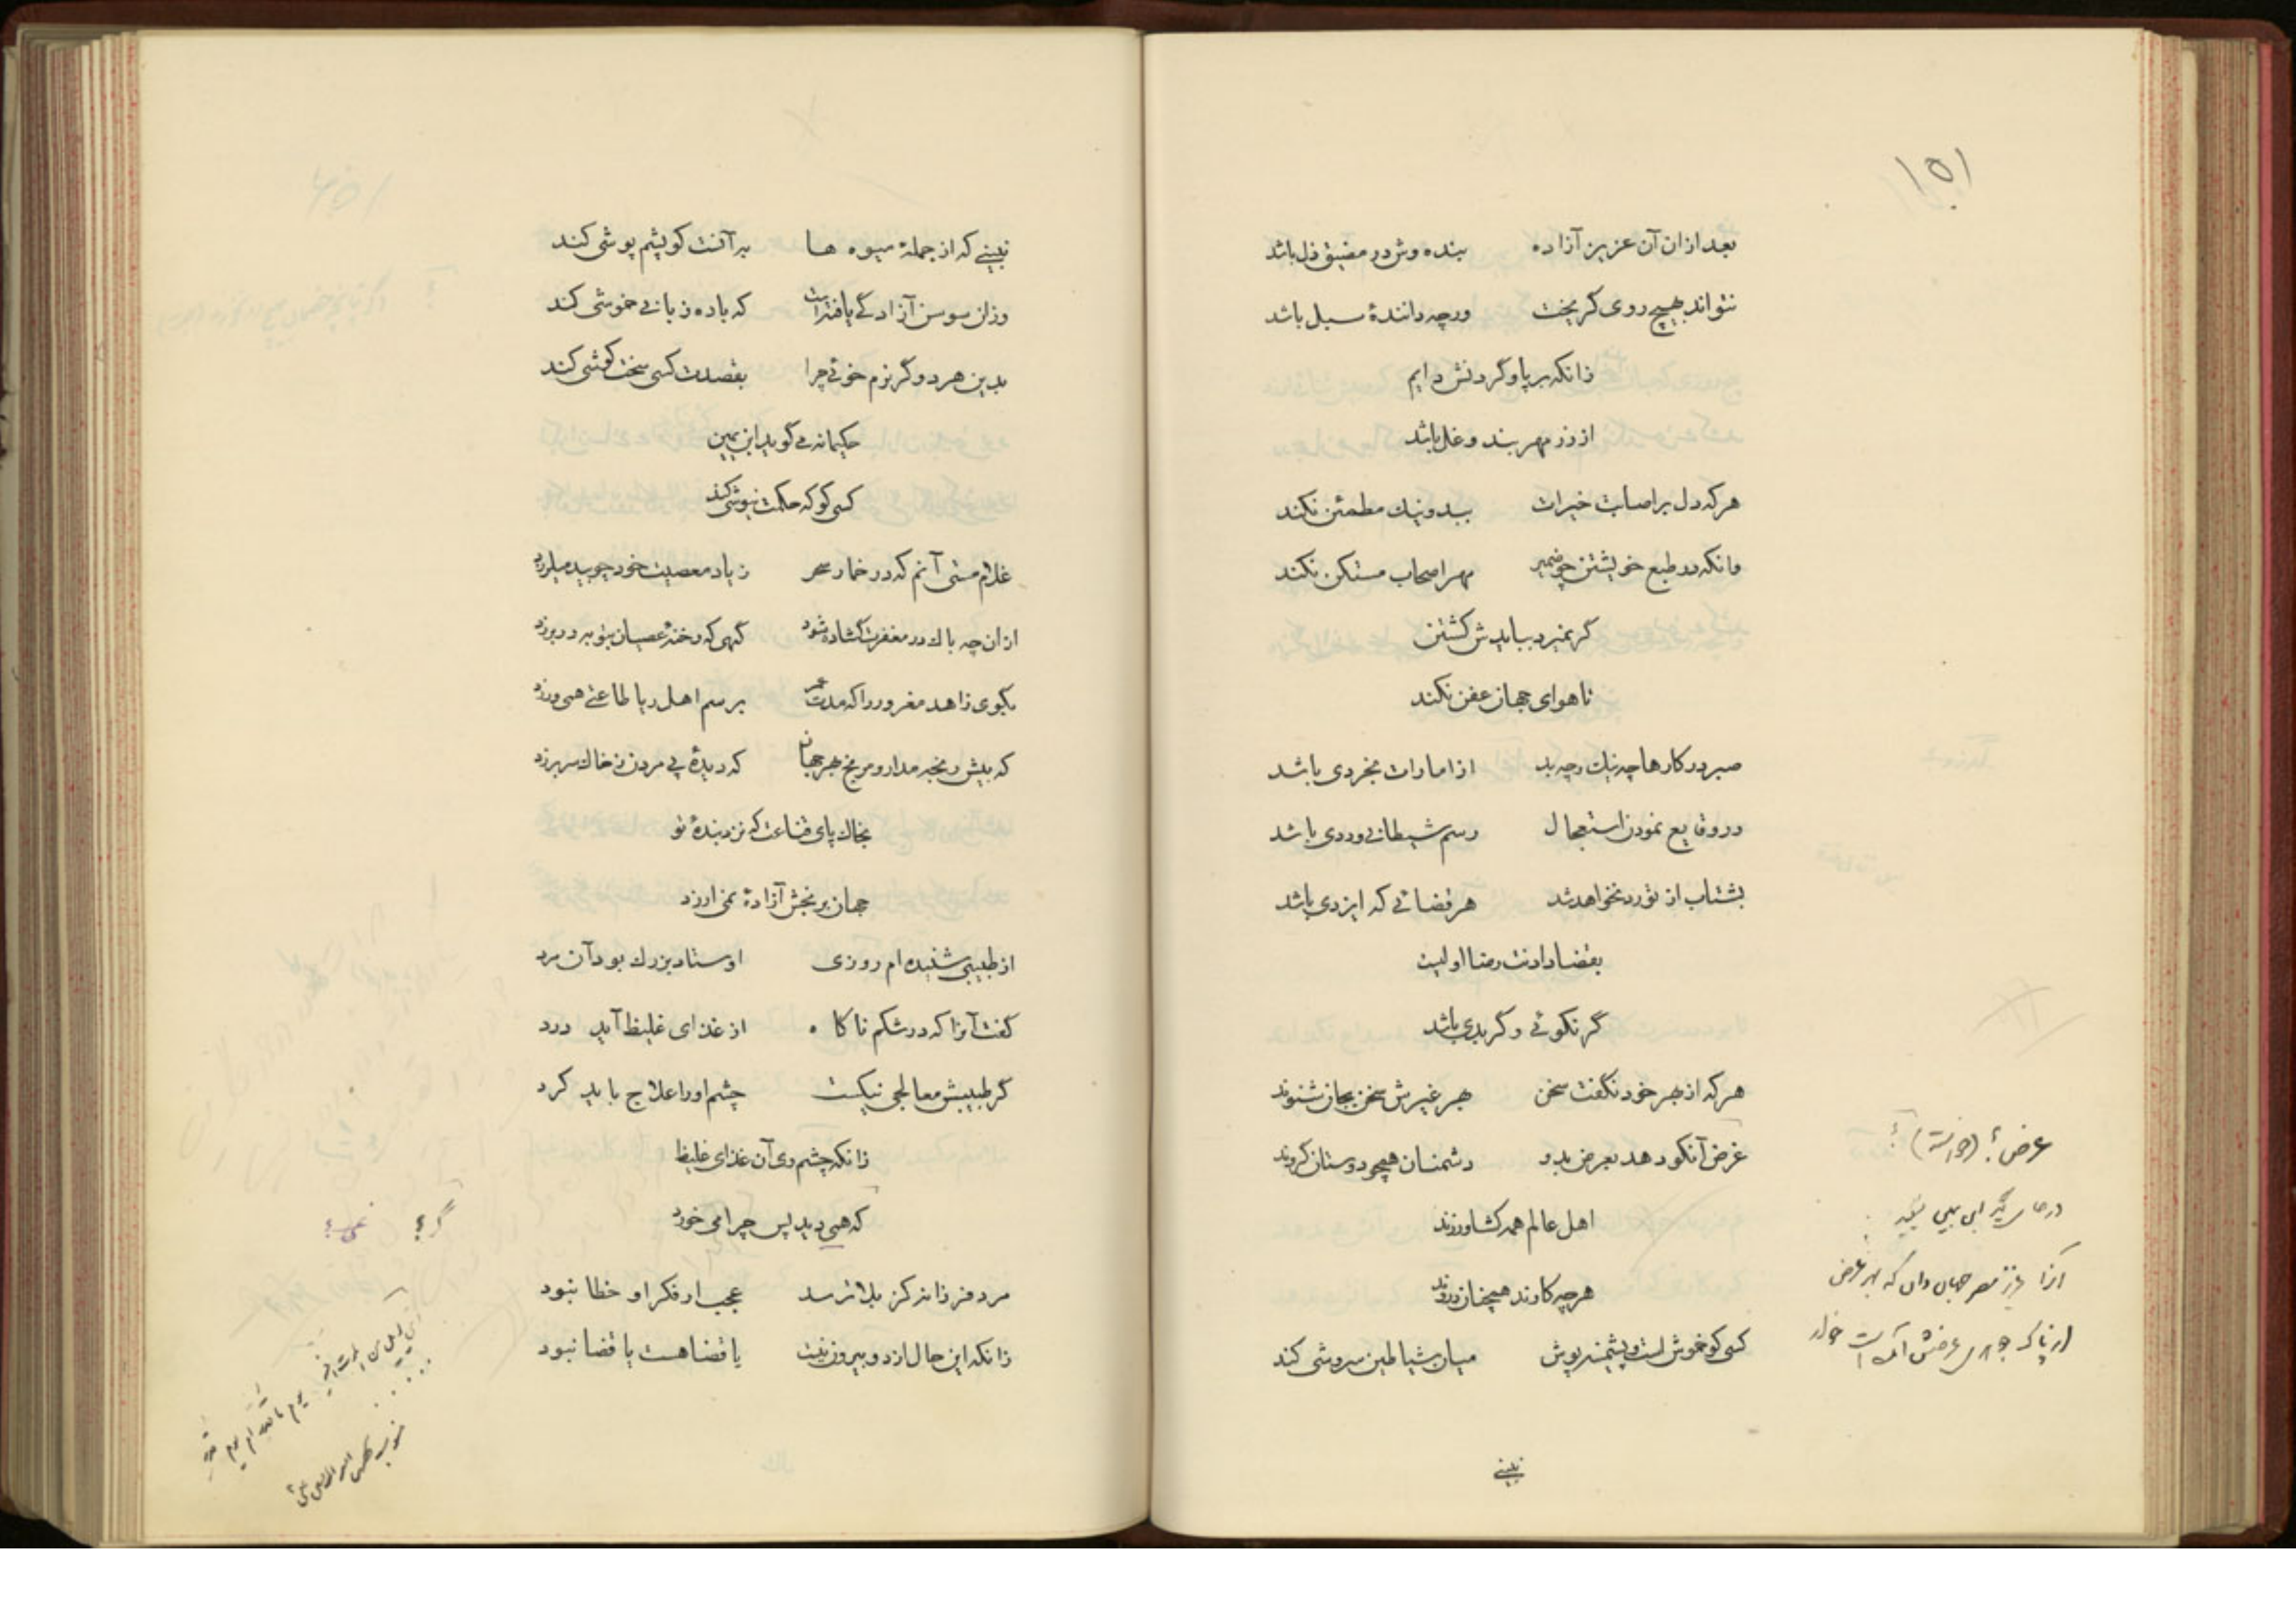 ۱۵۱
بعد ازان آن عزیز آزاده بنده وش در مضیق ذل باشد
نتواند بهیچ روی گریخت ورچه دانندهٔ سبل باشد
زانکه بر پا و گردنش دایم
از زر مهر بند و غل باشد
هرکه دل بر اصابت خیرات ببد و نیک مطمئن نکند
وانکه در طبع خویشتن چو ضمیر مهر اصحاب مستکن نکند
گر نمیرد ببایدش کشتن
تا هوای جهان عفن نکند
صبر در کارها چه نیک و چه بد از امارات بخردی باشد
در وقایع نمودن استعجال رسم شیطانی و ددی باشد
بشتاب از تو رد نخواهد شد هر قضائی که ایزدی باشد
بقضا دادنت رضا اولیت
گر نکوئی و گر بدی باشد
هرکه از بهر خود نگفت سخن بهر غیرش سخن بجان شنوند
غرض آنکو دهد بعرض بدو دشمنان همچو دوستان گروند
اهل عالم همه کشاورزند
هرچه کارند همچنان دروند
کسی کو خوش است و پشمینه پوش میان شیاطین سروشی کند
نبینی
عرض؟
در جای دیگر ابن یمین میگوید
آنرا عزیز مصر جهان دان که بهر عرض
نبینی که از جملهٔ میوه ها به آفت کو پشم پوشی کند
وزان سوسن آزادگی یافتست که با ده زبانی خموشی کند
بدین هر دو گر نرم خوئی چرا بقصدت کسی سخت کوشی کند
حکیمانه می گوید ابن یمین
کسی کو که حکمت نیوشی کند
غلام مستی آنم که در خمار سحر زیاد معصیت خود چو بید میلرزد
ازان چه باک در مغفرت گشاده شود گهی که رخنهٔ عصیان بتوبه در دوزد
بگوی زاهد مغرور را که مدت عمر برسم اهل ریا طاعتی همی ورزد
که بیش رنجه مدار و مرنج بهر جهان که دیدهٔ پی مردن ز خاک سر برزد
بخاک پای قناعت که نزد بندهٔ تو
جهان برنجش آزادهٔ نمی ارزد
از طبیبی شنیده ام روزی اوستاد بزرگ بود آن مرد
گفت آنرا که در شکم ناگاه از غذای غلیظ آید درد
گر طبیبش معالجی نیکست چشم او را علاج باید کرد
زانکه چشم وی آن غذای غلیظ
که همی دید پس چرا می خورد
مرد فرزانه کز بلا ترسد عجب ار فکر او خطا نبود
زانکه این حال از دو بیرون نیست یا قضا هست یا قضا نبود
گر؟ نمی؟